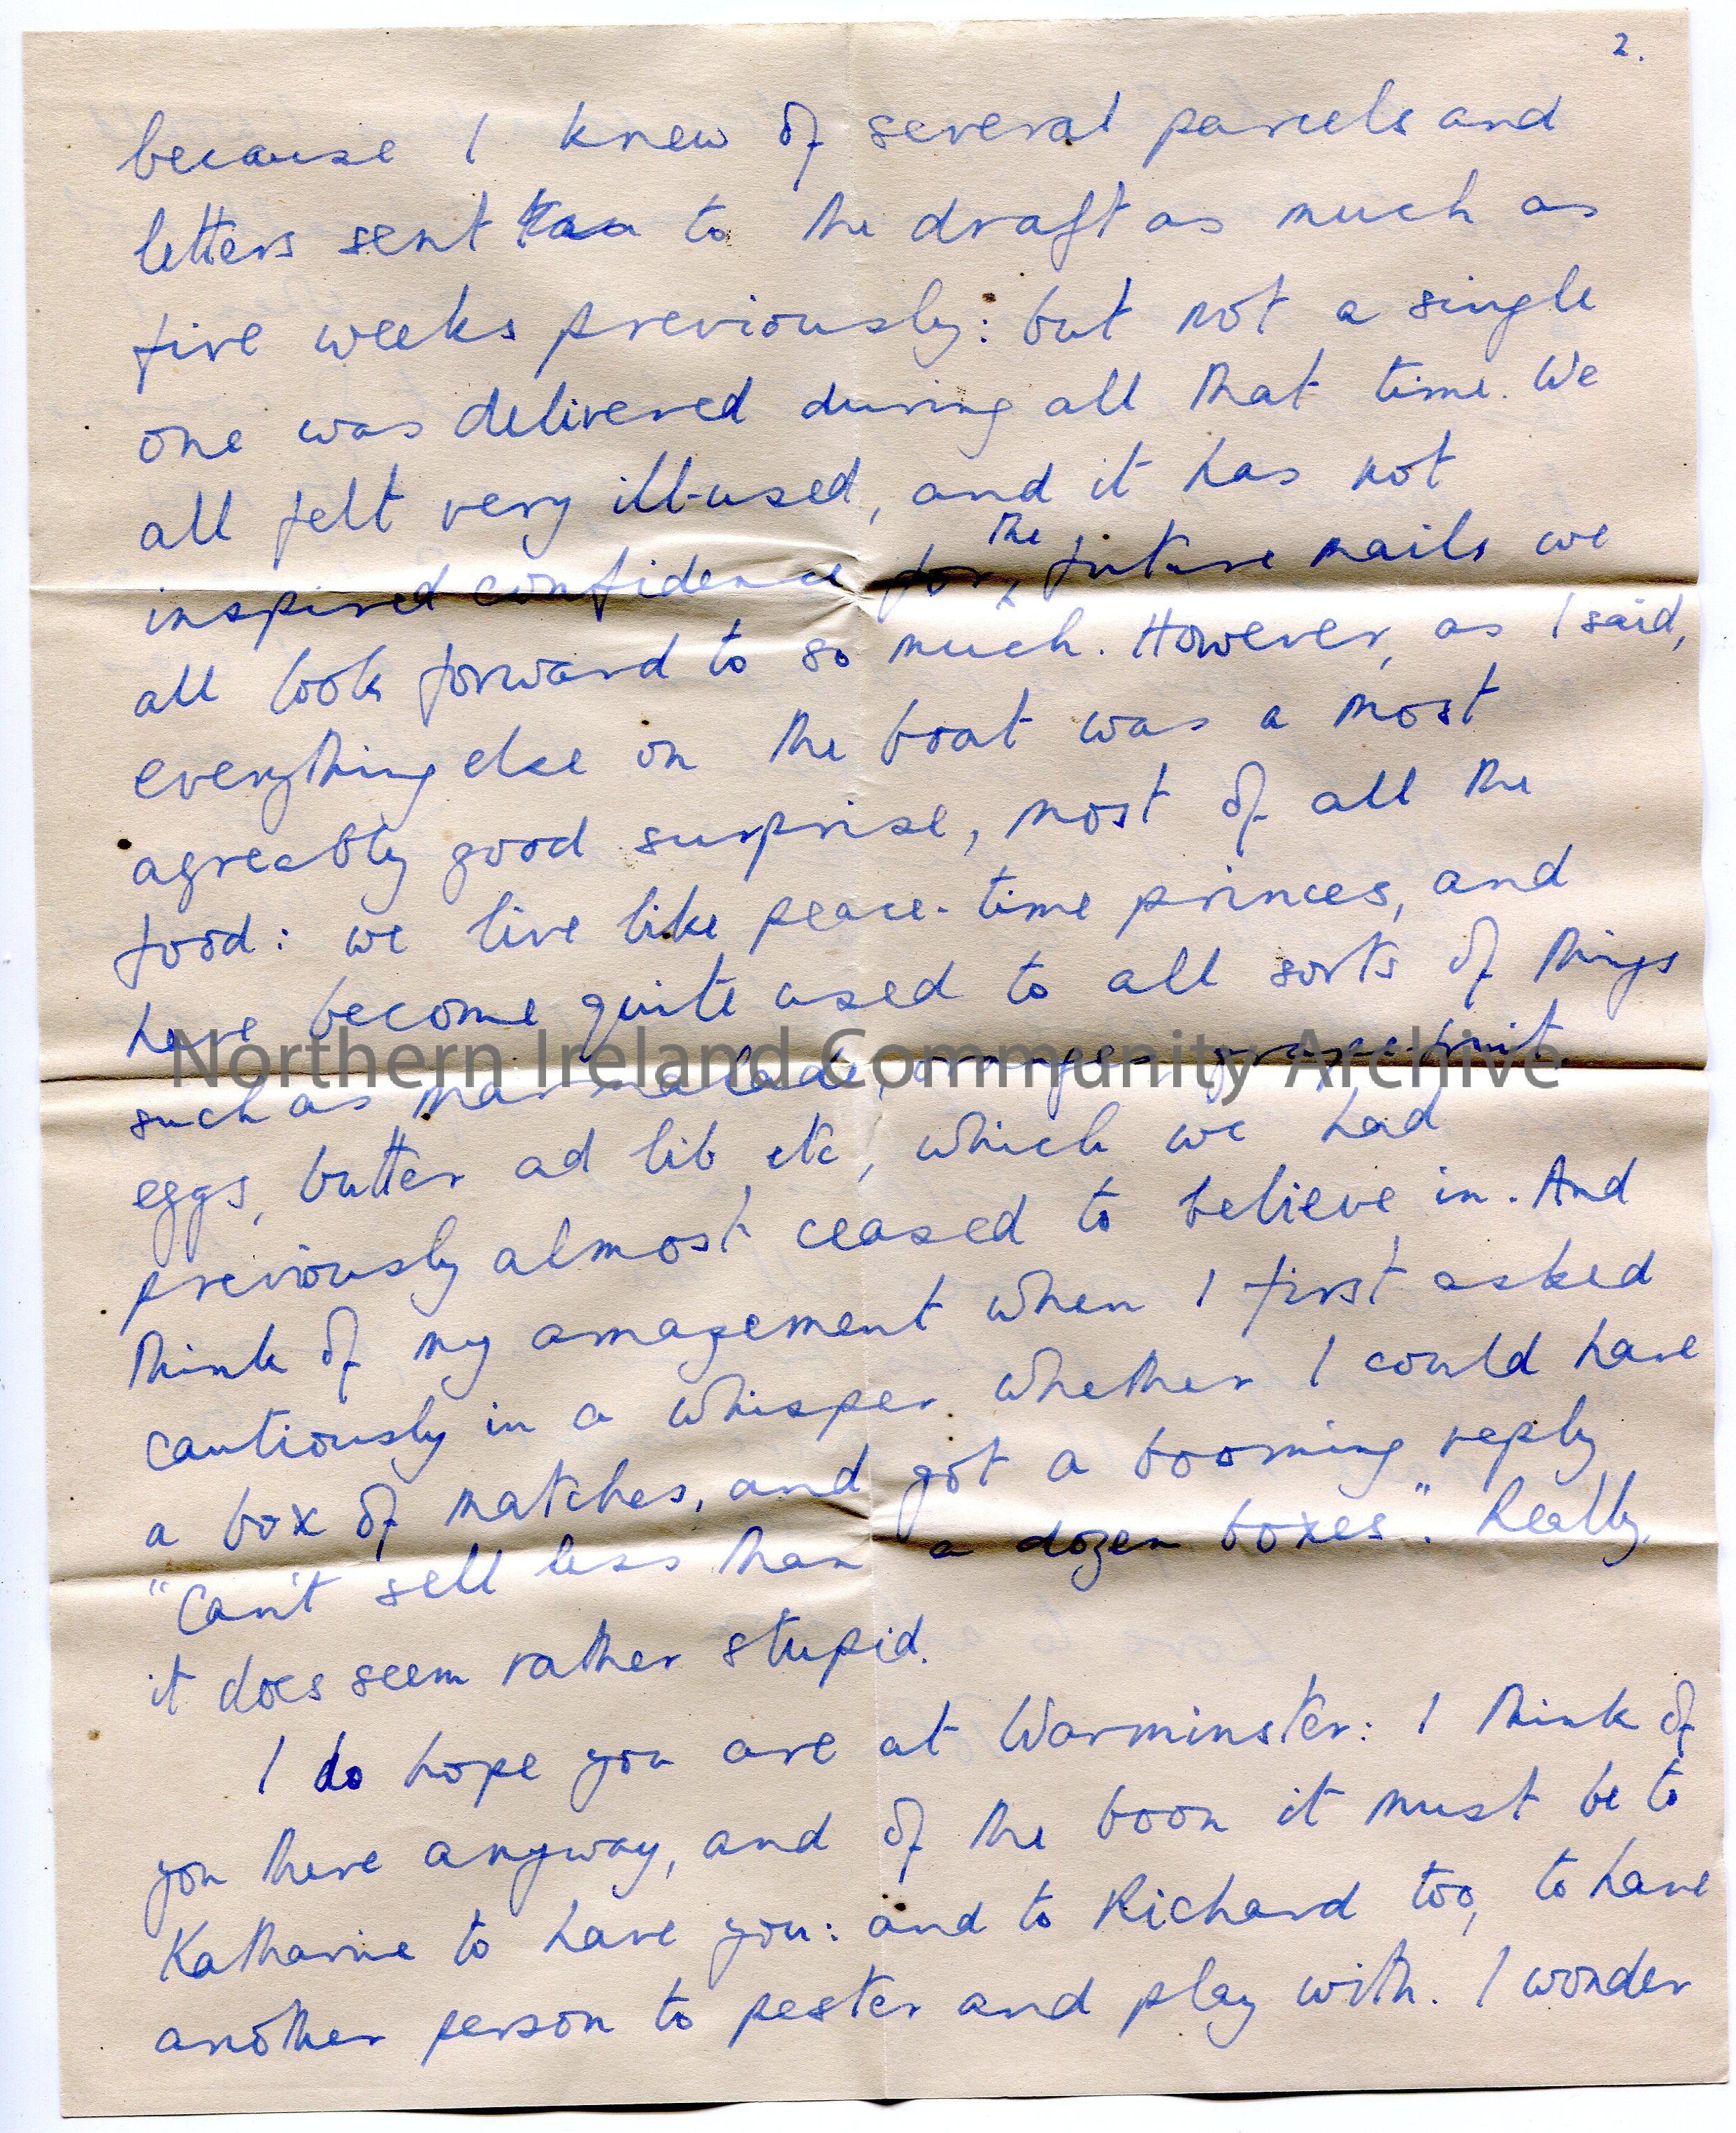 2.
because I knew of several parcels and
letters sent to the draft as much as
five weeks previously: but not a single
one was delivered during all that time. We
all felt very ill-used, and it has not
inspired confidence for the future mails we
all look forward to so much. However, as I said,
everything else on the boat was a most
agreably good surprise, most of all the
food: we live like peace-time princes, and
have become quite used to all sorts of things
Northern Ireland Community Archive
such as marmalade, oranges, grape-fruit,
eggs, butter ad lib etc, which we had
previously almost ceased to believe in. And
think of my amazement when I first asked
cautiously in a whisper whether I could have
a box of matches, and got a booming reply
"Can't sell less than a dozen boxes". Really,
it does seem rather stupid.
I do hope you are at Warminster: I think of
you there anyway, and of the boon it must be to
Katharine to have you: and to Richard too, to have
another person to pester and play with. I wonder